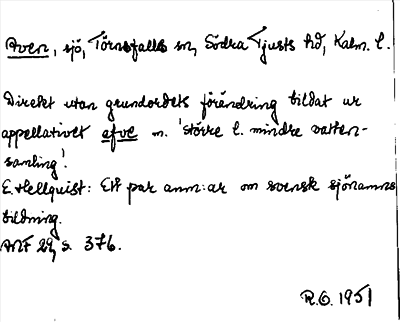 Aven, sjö, Törnsfalls sn, Södra Tjusts hd, Kalm. l.
Direkt utan grundordets förändring bildat ur
appellativet afve m. 'större l. mindre vatten-
samling'.
E. Hellquist: Ett par anm:ar om svensk sjönamns
bildning.
ANF 29, s. 376.
R.O. 1951